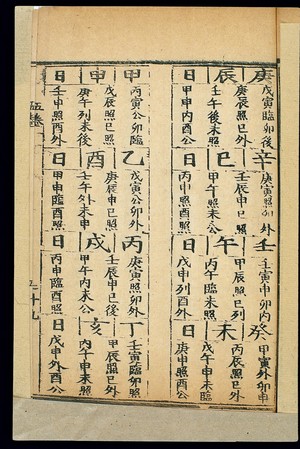 庚辰日
戊寅臨卯後
庚辰照巳外
壬午後未照
甲申內酉公
辛巳日
庚寅照卯外
壬辰申巳
甲午照未
丙申照酉照
壬午日
壬寅申卯內
甲辰照巳列
丙午臨未照
戊申列酉外
癸未日
甲寅外卯申
丙辰照巳外
戊午申未臨
庚申照酉照
甲申日
丙寅公卯臨
戊辰照巳照
庚午列未後
壬申照酉外
乙酉日
戊寅公卯外
庚辰申巳照
壬午外未申
甲申臨酉照
丙戌日
庚寅照卯外
壬辰申巳後
甲午內未公
丙申臨酉照
丁亥日
壬寅臨卯照
甲辰照巳外
丙午申未照
戊申外酉公
十九